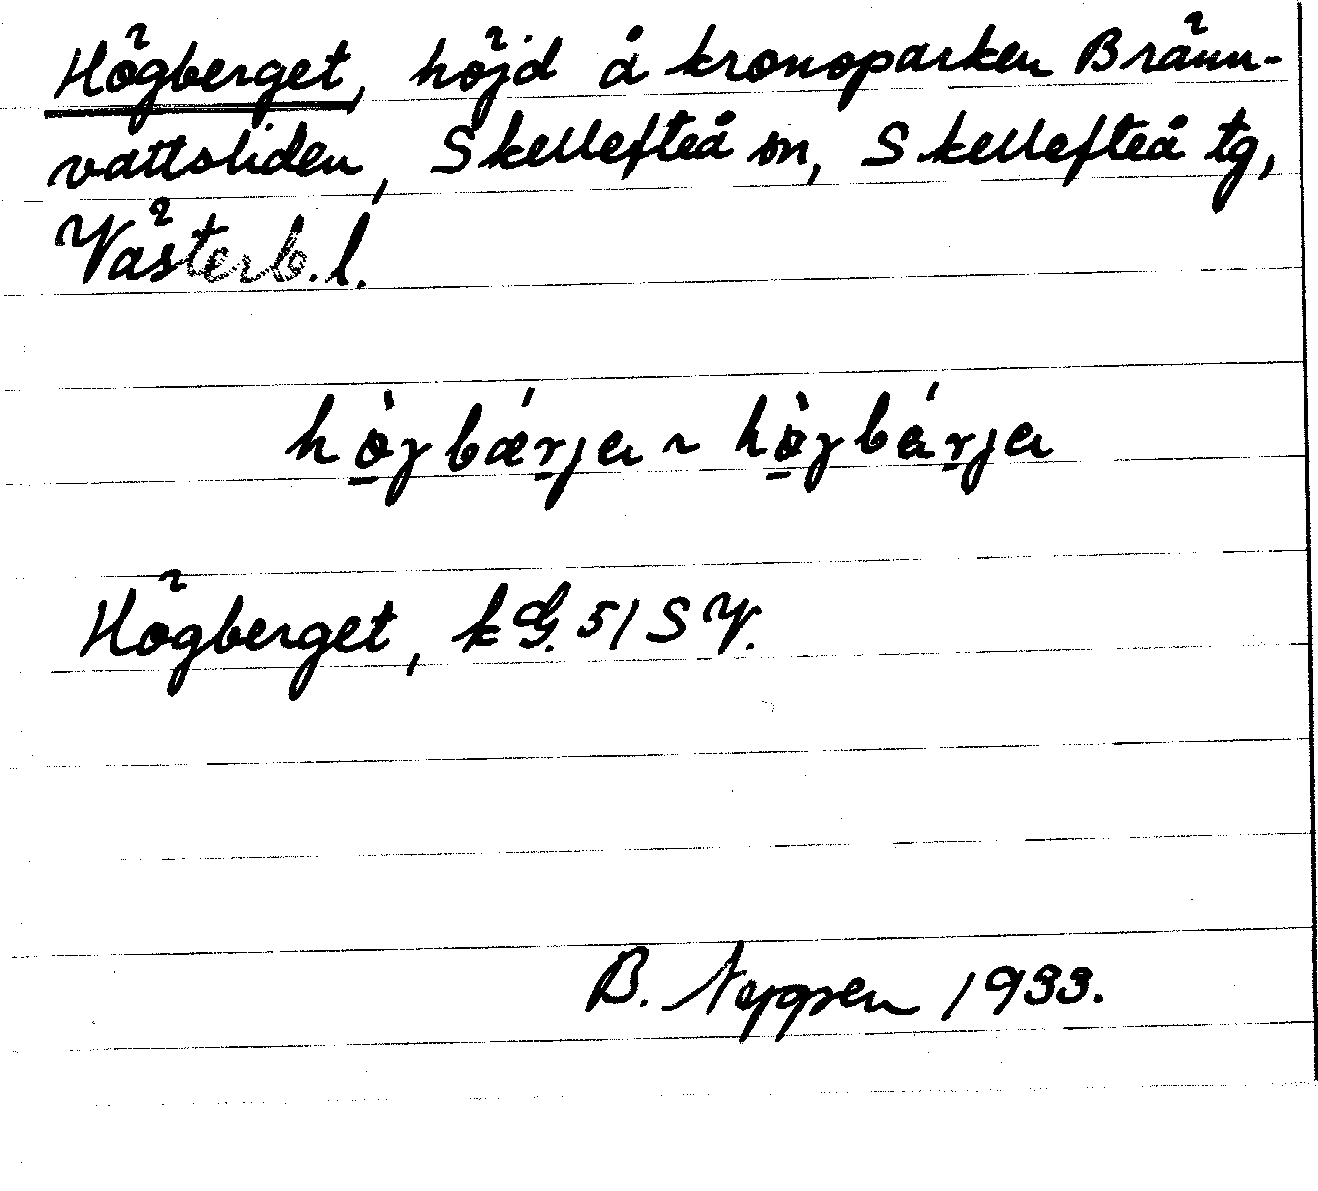 Högberget, höjd å kronoparken Bränn-
vattsliden, Skellefteå sn, Skellefteå tg,
Västerb. l.
hö̀jbærja ~ hö̀jbárja
Högberget, kG. 51 SV.
B. 1933.